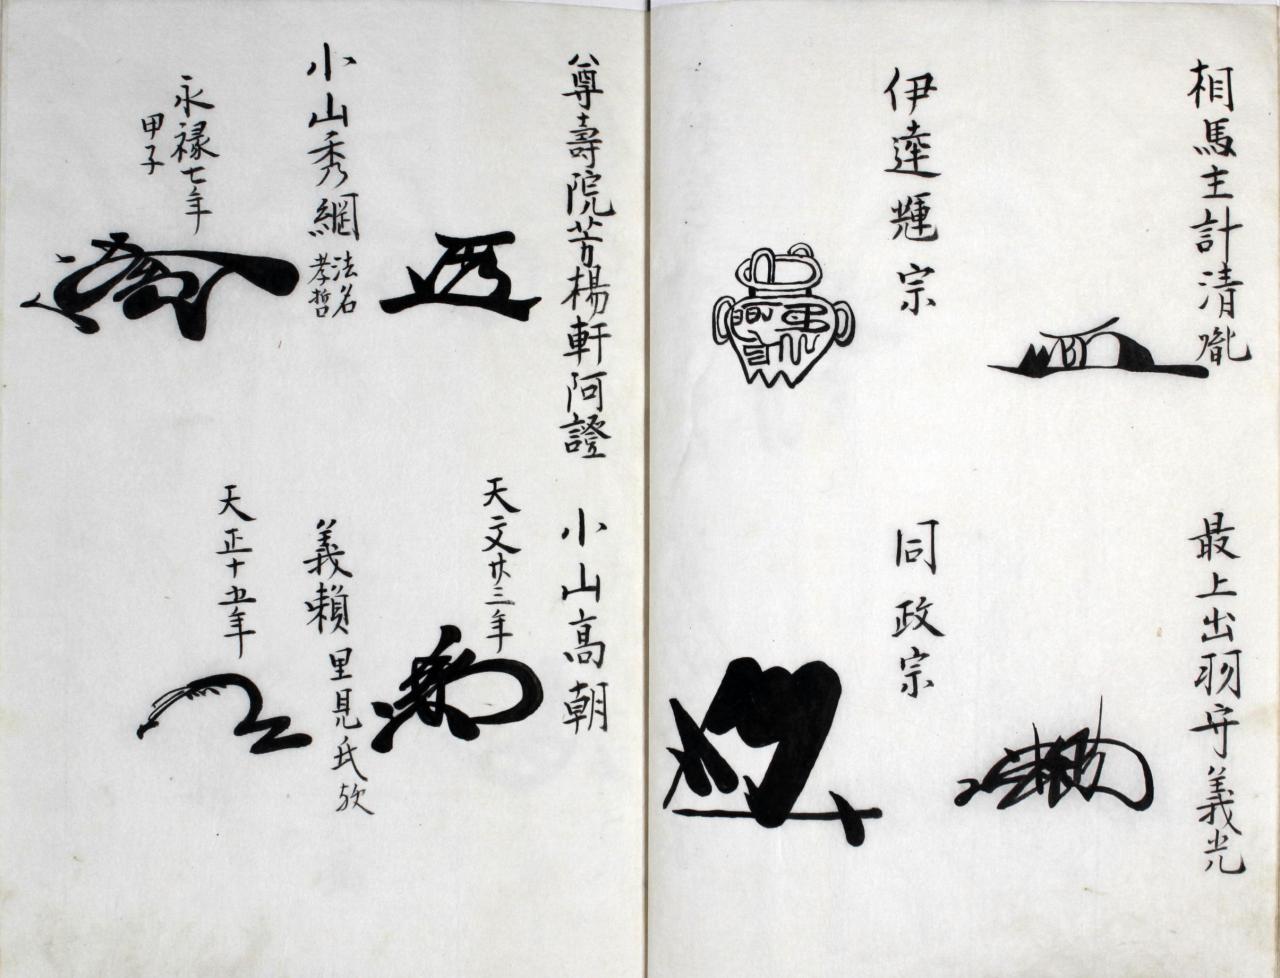 相馬主計清胤
最上出羽守義光
伊達輝宗
同政宗
尊壽院芳楊軒阿證
小山高朝
天文廿三年
小山秀綱
法名
孝哲
義頼
里見氏欤
永禄七年
甲子
天正十五年